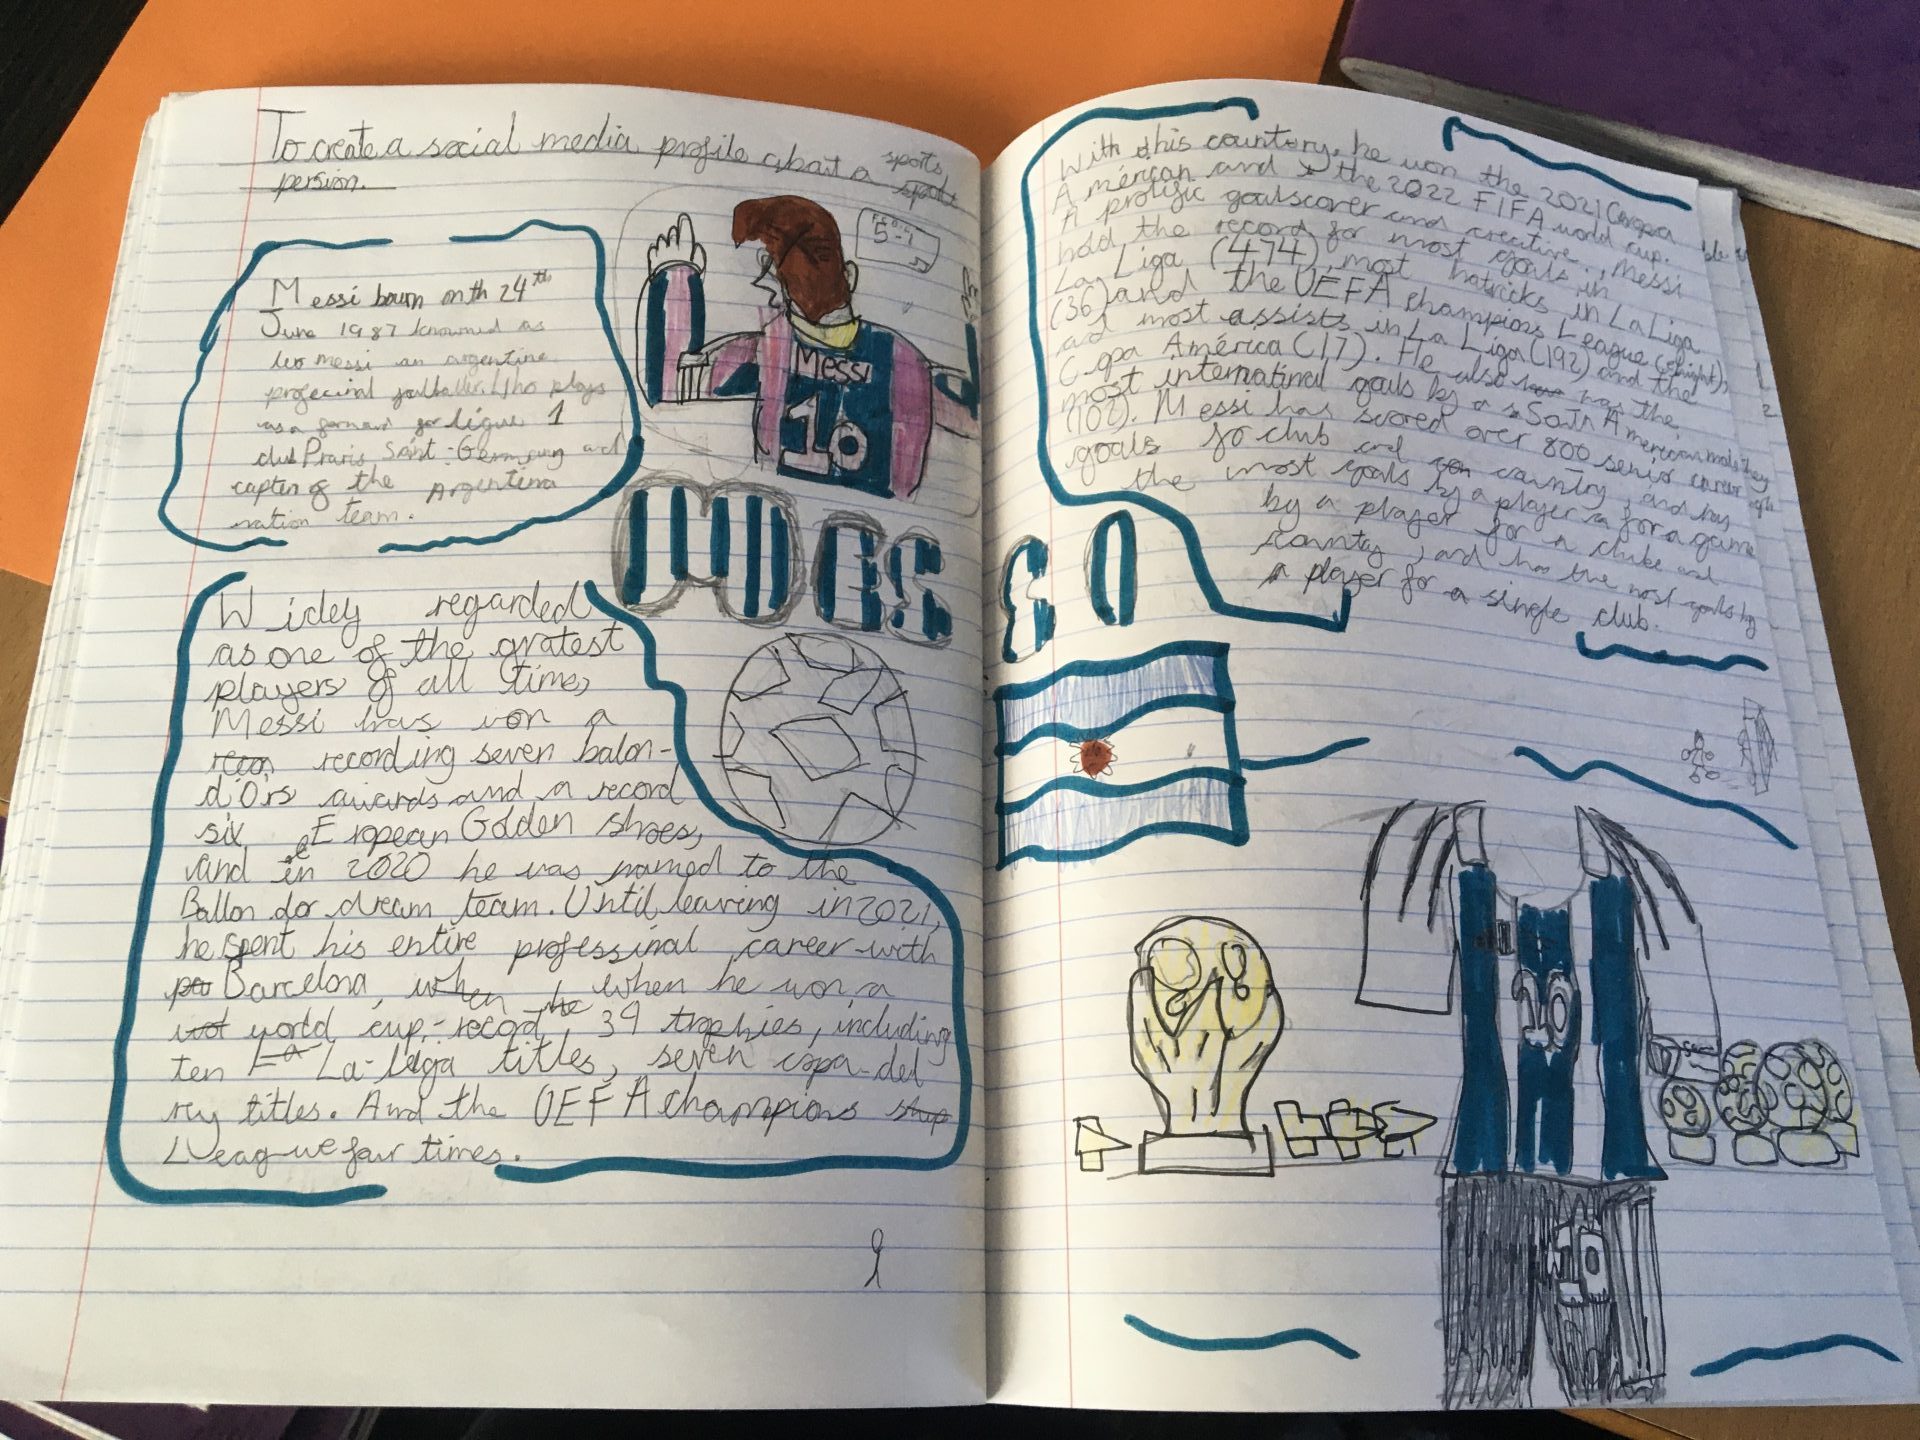 To create a social media profile about a sports
persion.
Messi bourn onth 24th
June 1987 knowned as
leo messi an argentine
footballer. Who plays
as a forward for ligue 1
club Praris Saint-Germany and
capten of the Argentina
nation team.
Widey regarded
as one of the gratest
players of all time,
Messi has won a
recording seven balon-
d'Ors awards and a record
six Eropean Golden shoes,
and in 2020 he was named to the
Ballon dor dream team. Until leaving in 2021,
he spent his entire professinal career with
Barcelona, when he won a
world cup-record, 34 trophies, including
ten La-liga titles, seven copa-del
rey titles. And the UEFA champions
League four times.
FCB
5-1
Messi
10
MOESSI
With this country, he won the 2021 Copa
Américan and the 2022 FIFA world cup.
A prolific goalscorer and creative. Messi
hold the record for most goals in
La Liga (474), most hatricks in La Liga
(36) and the UEFA champions League (eight),
ad most assists in La Liga (192) and the
Copa América (17). He also has the
most internatinal goals by a South American male
(102). Messi has scored over 800 senior career
goals fo club and country, and has
the most goals by a player for a game
by a player for a clube and
country, and has the most goals by
a player for a single club.
10
10